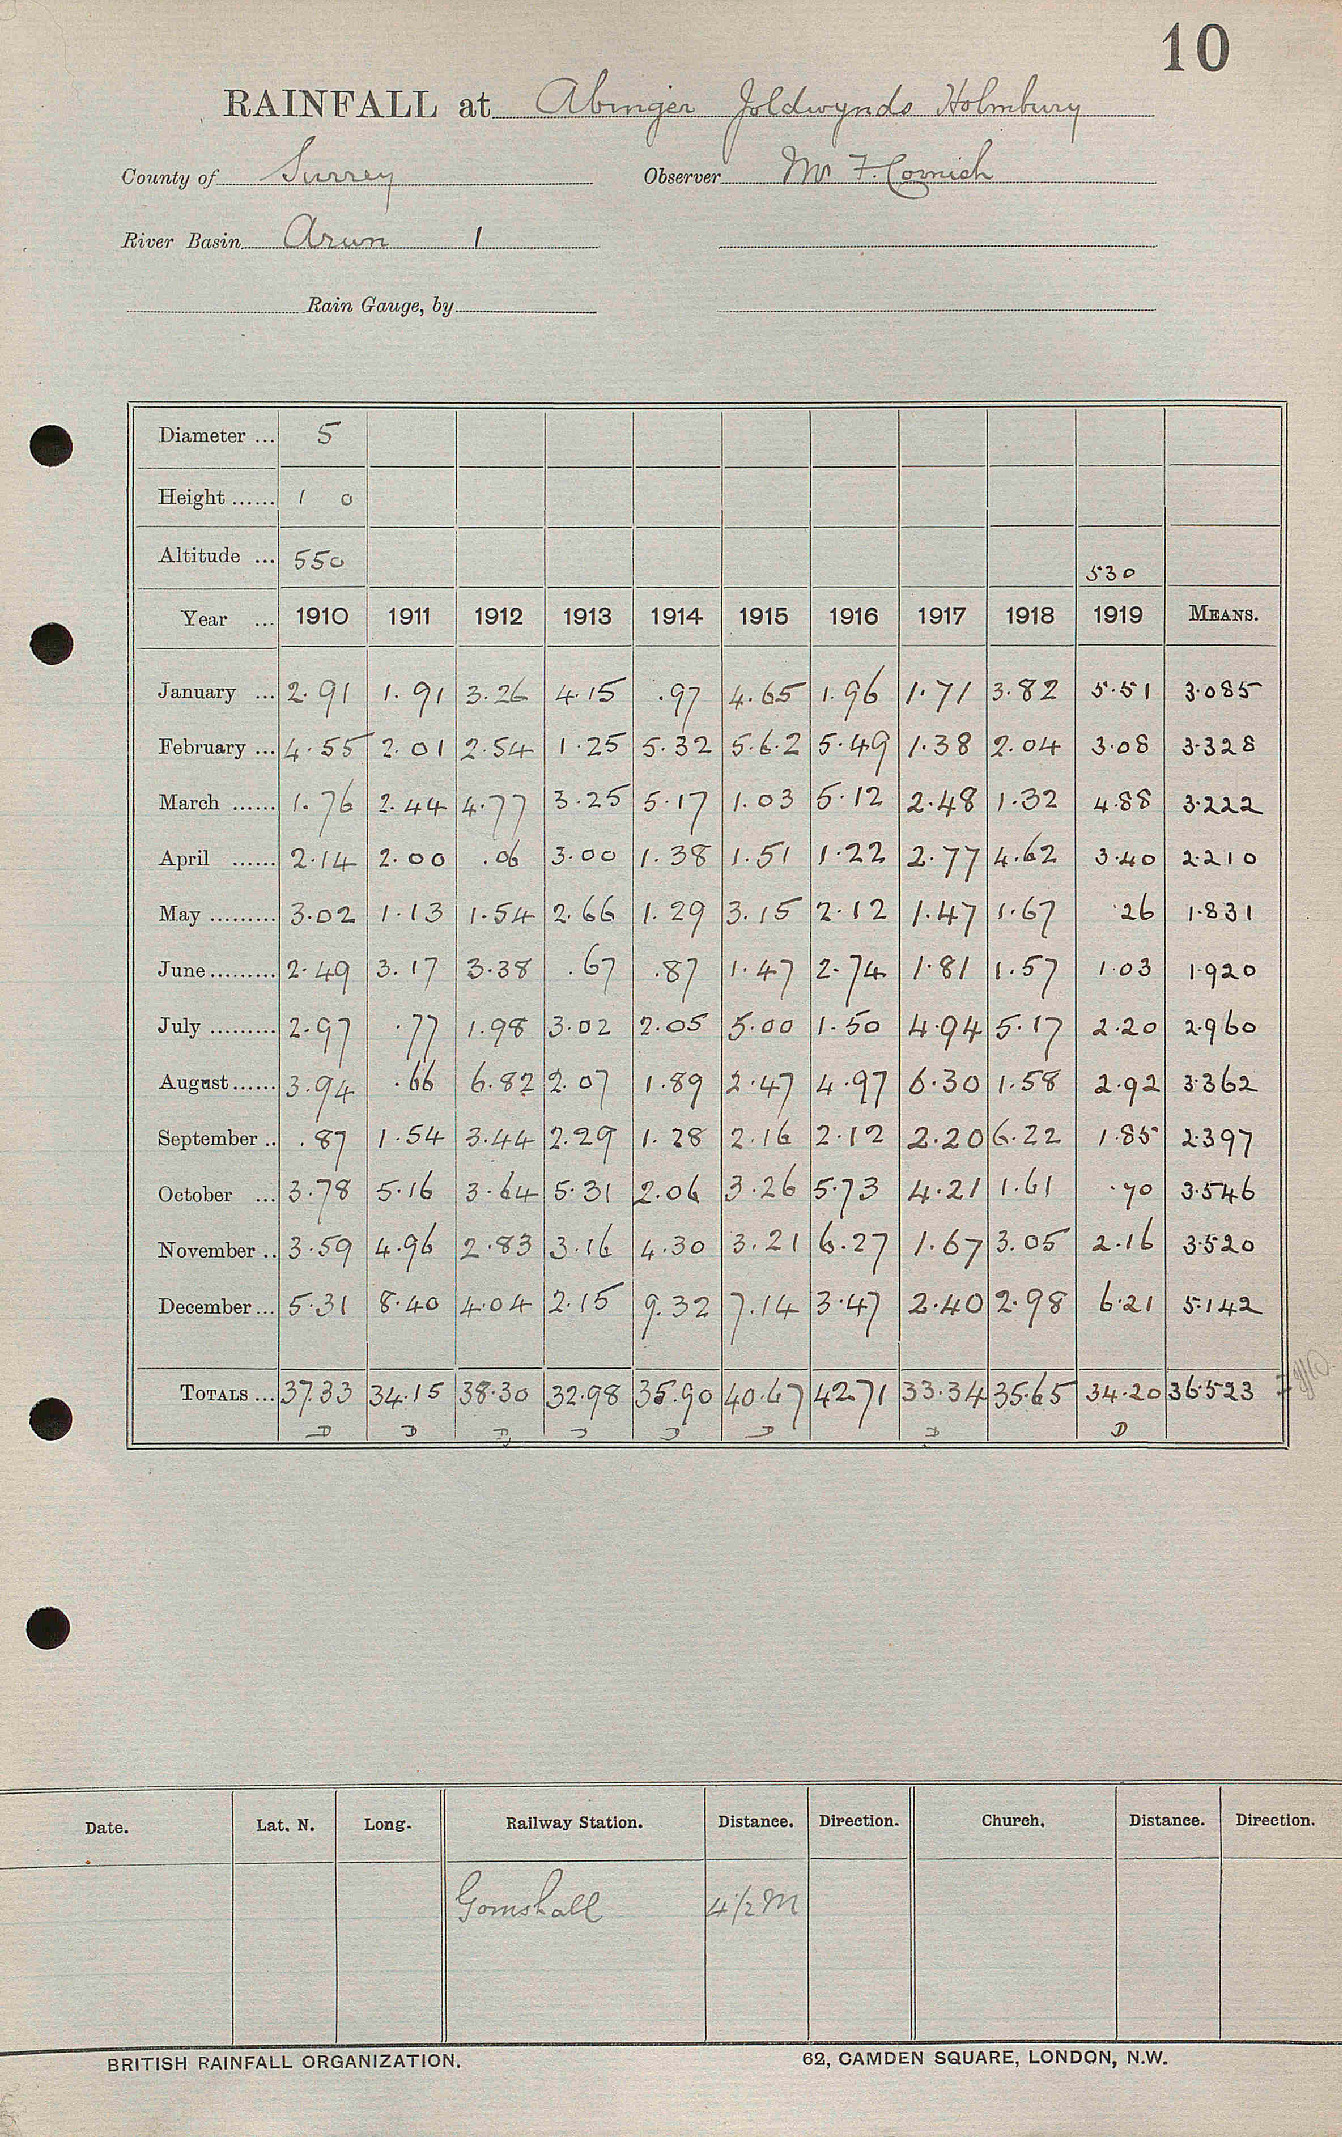 10
RAINFALL at Abinger Joldwynds Holmbury
County of Surrey Observer Mr F. Cornish
River Basin Arun 1
Rain Gauge, by
Diameter ... 5
Height ...... 1 0
Altitude ... 550 530
Year ... 1910 1911 1912 1913 1914 1915 1916 1917 1918 1919 MEANS.
January ... 2.91 1.91 3.26 4.15 .97 4.65 1.96 1.71 3.82 5.51 3.085
February ... 4.55 2.01 2.54 1.25 5.32 5.62 5.49 1.38 2.04 3.08 3.328
March ...... 1.76 2.44 4.77 3.25 5.17 1.03 5.12 2.48 1.32 4.88 3.222
April ...... 2.14 2.00 .06 3.00 1.38 1.51 1.22 2.77 4.62 3.40 2.210
May ......... 3.02 1.13 1.54 2.66 1.29 3.15 2.12 1.47 1.67 .26 1.831
June ......... 2.49 3.17 3.38 .67 .87 1.47 2.74 1.81 1.57 1.03 1.920
July ......... 2.97 .77 1.98 3.02 2.05 5.00 1.50 4.94 5.17 2.20 2.960
August ...... 3.94 .66 6.82 2.07 1.89 2.47 4.97 6.30 1.58 2.92 3.362
September .. .87 1.54 3.44 2.29 1.28 2.16 2.12 2.20 6.22 1.85 2.397
October ... 3.78 5.16 3.64 5.31 2.06 3.26 5.73 4.21 1.61 .70 3.546
November .. 3.59 4.96 2.83 3.16 4.30 3.21 6.27 1.67 3.05 2.16 3.520
December ... 5.31 8.40 4.04 2.15 9.32 7.14 3.47 2.40 2.98 6.21 5.142
TOTALS ... 37.33 34.15 38.30 32.98 35.90 40.67 42.71 33.34 35.65 34.20 36.523
D D D D D D D D
Date. Lat. N. Long. Railway Station. Distance. Direction. Church. Distance. Direction.
Gomshall 4 1/2 M
BRITISH RAINFALL ORGANIZATION. 62, CAMDEN SQUARE, LONDON, N.W.